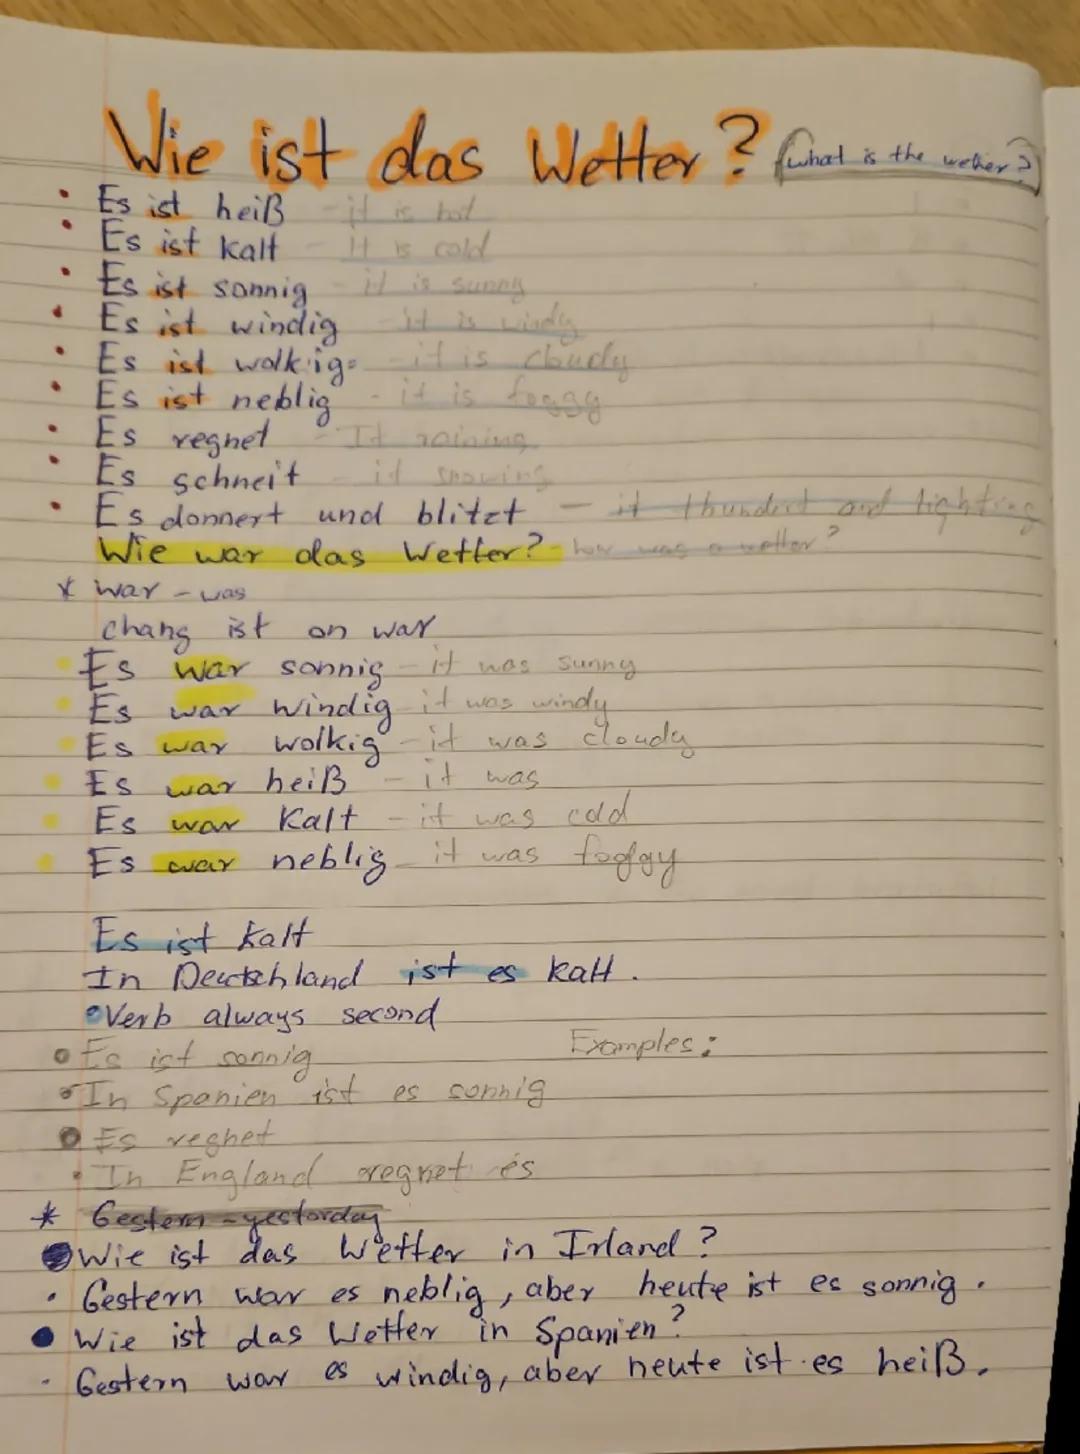 Wie ist das Wetter? (what is the wether?)
Es ist heiß - it is hot
Es ist kalt - It is cold
Es ist sonnig - it is sunny
Es ist windig - it is windy
Es ist wolkig - it is cloudy
Es ist neblig - it is foggy
Es regnet - It raining
Es schneit - it snowing
Es donnert und blitzt - it thundert and lighting
Wie war das Wetter? - how was a wetter?
* war - was
chang ist on war
Es war sonnig - it was sunny
Es war windig - it was windy
Es war wolkig - it was cloudy
Es war heiß - it was
Es war Kalt - it was cold
Es war neblig - it was foggy
Es ist kalt
In Deutschland ist es kalt.
• Verb always second
Es ist sonnig Examples:
In Spanien ist es sonnig
Es regnet
In England regnet es
* Gestern - yestorday
Wie ist das Wetter in Irland?
• Gestern war es neblig, aber heute ist es sonnig.
• Wie ist das Wetter in Spanien?
- Gestern war es windig, aber heute ist es heiß.